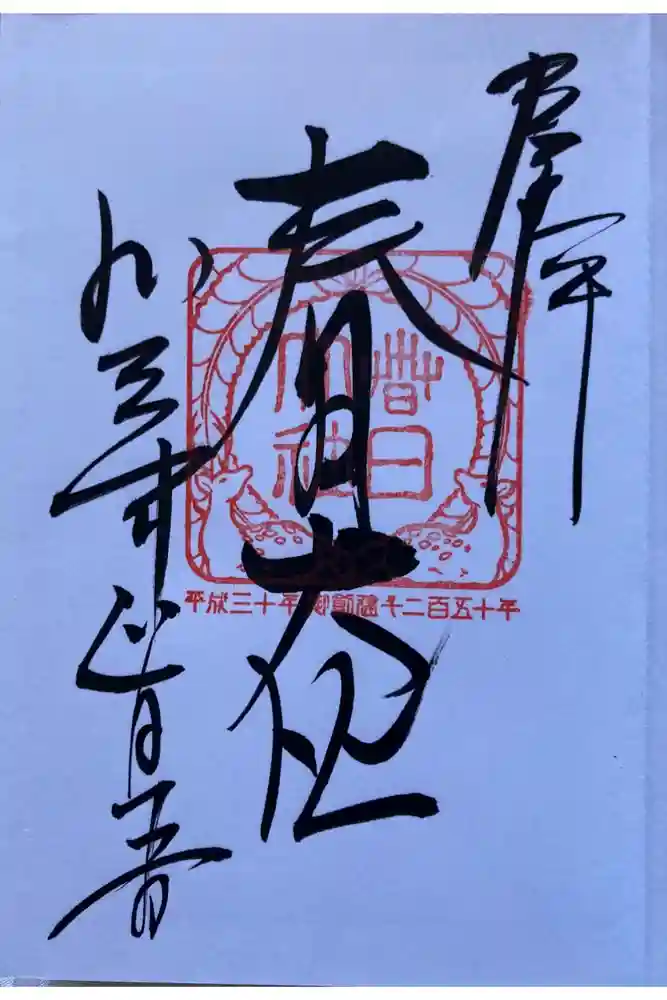 奉拝
春日大社
春日
大社
平成三十年 御創建千二百五十年
正月